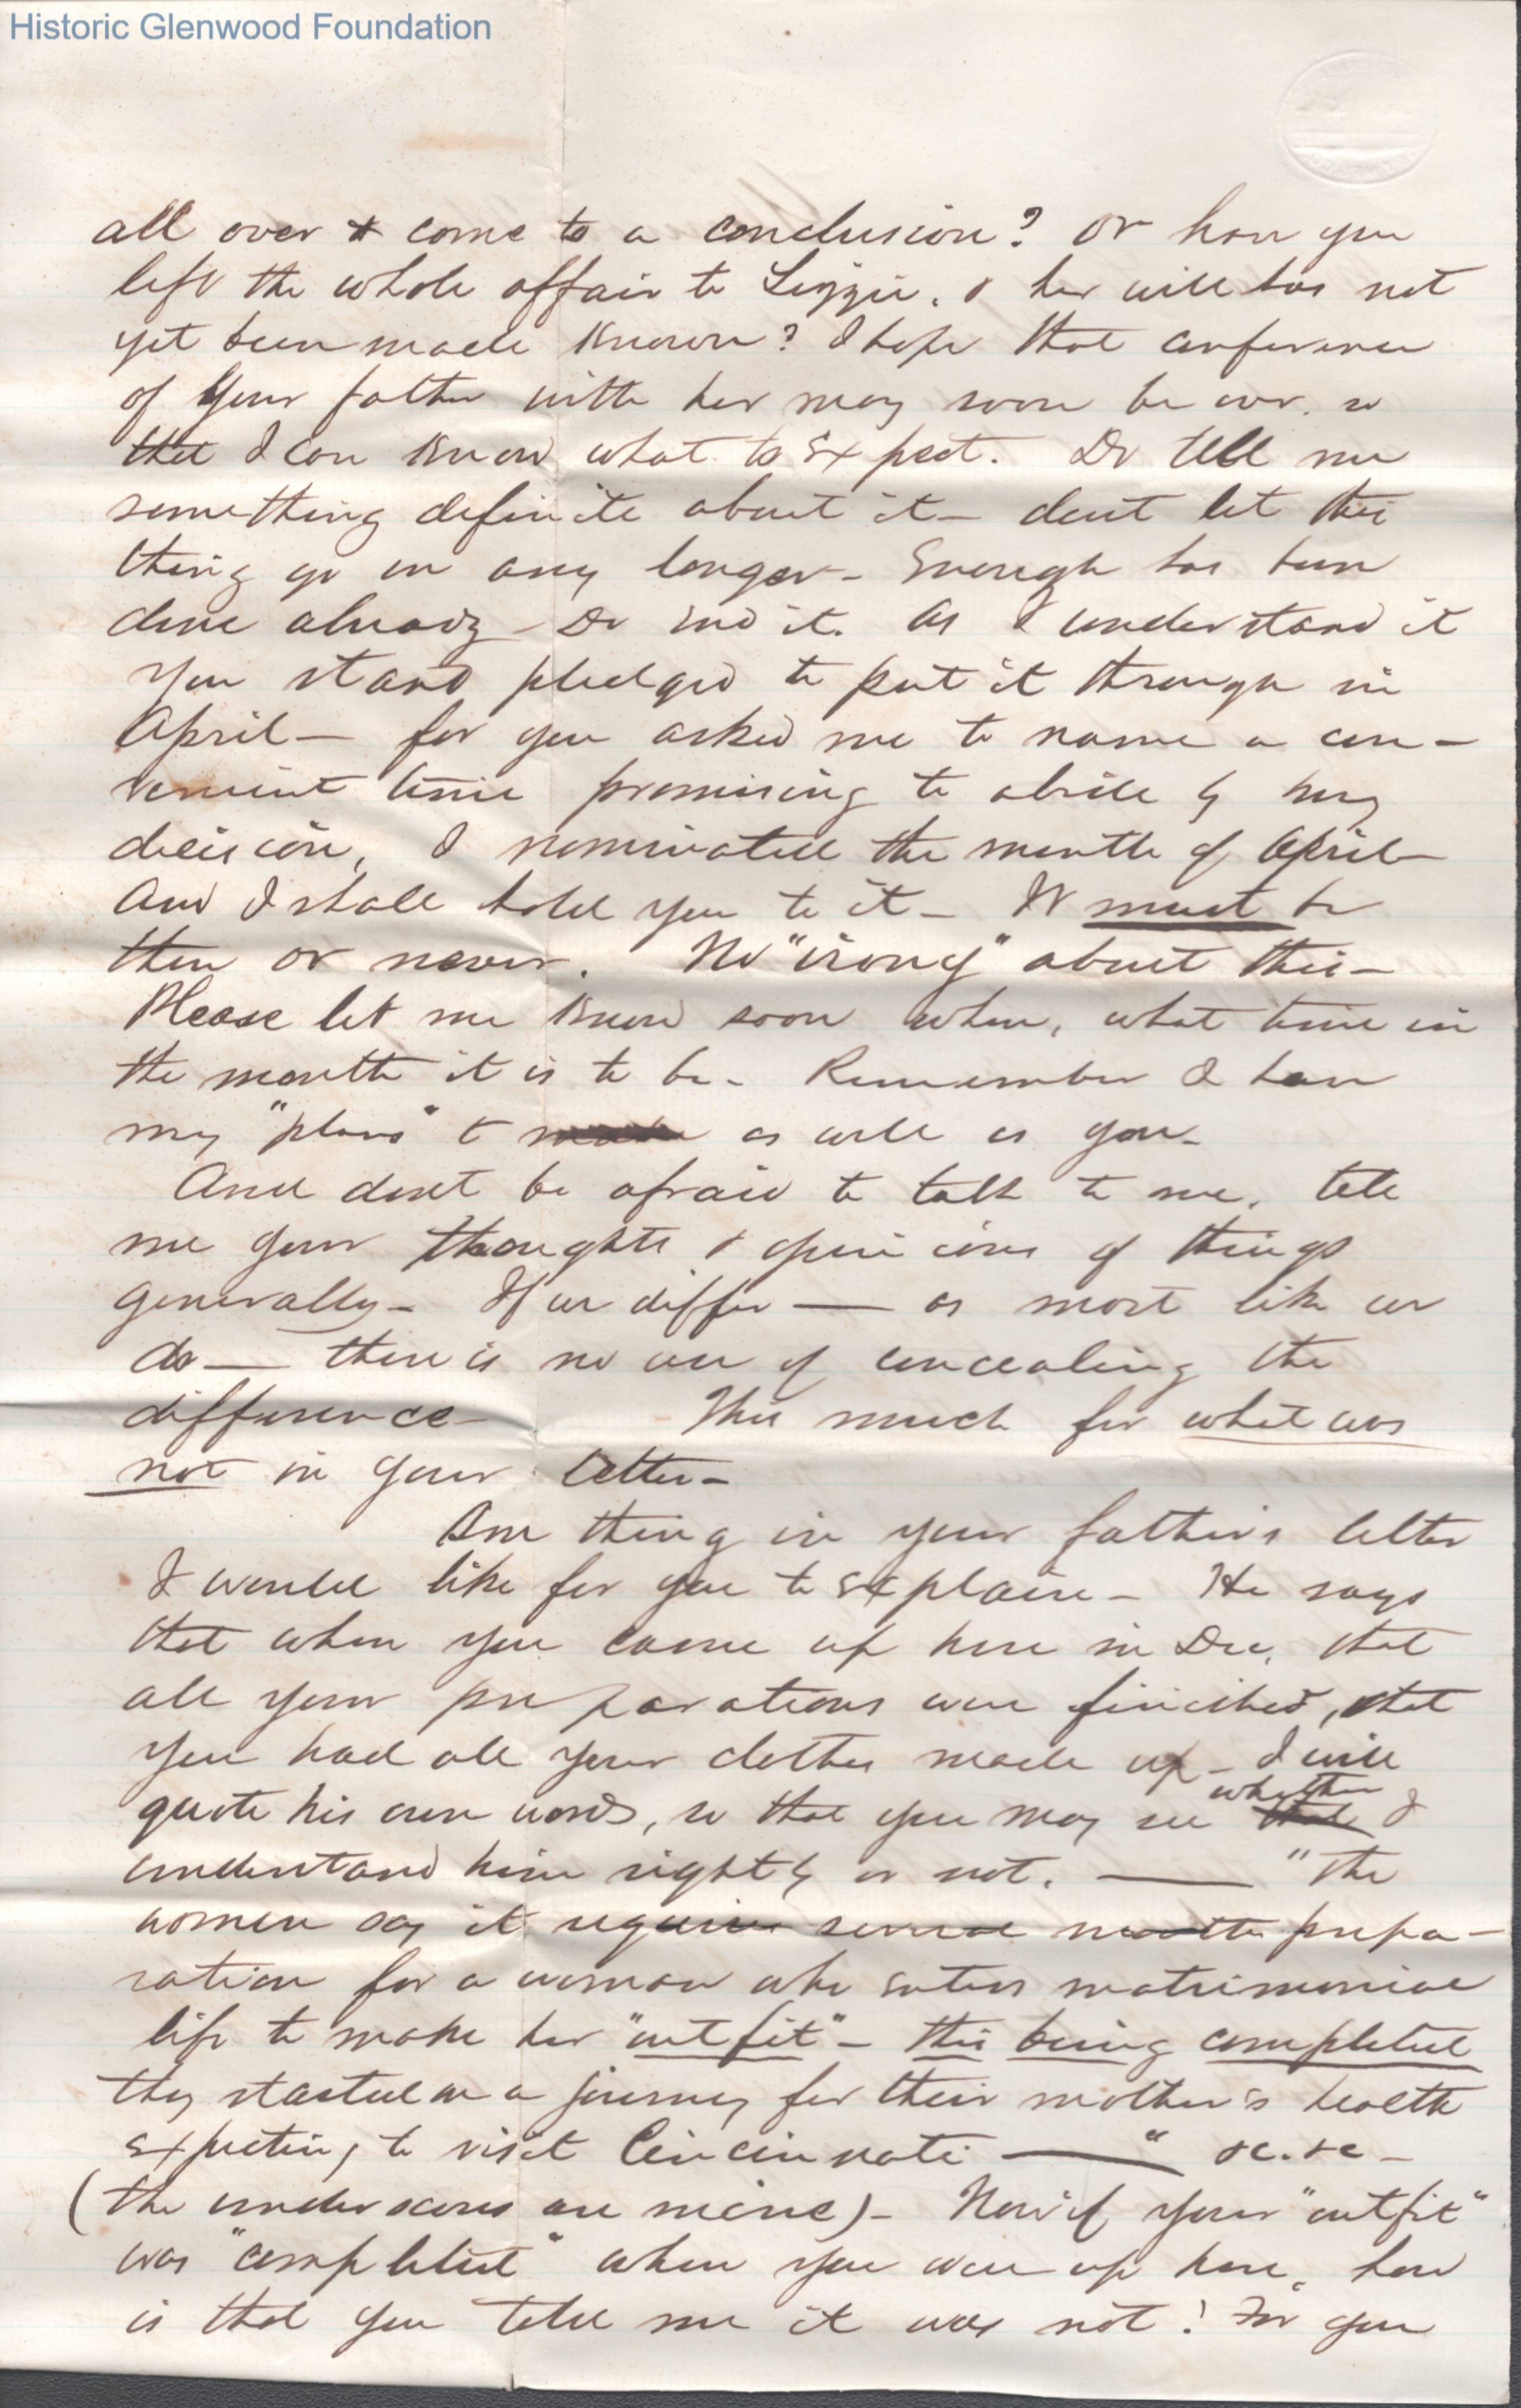 Historic Glenwood Foundation
all over & come to a conclusion? or have you
left the whole affair to Lizzie, & her will has not
yet been made known? I hope that conference
of your father with her may soon be over, so
that I can know what to expect. Do tell me
something definite about it — dont let this
thing go on any longer — Enough has been
done already — Do end it. As I understand it
you stand pledged to put it through in
April — for you asked me to name a con-
venient time promising to abide by my
decision, I nominated the month of April —
And I shall hold you to it — It must be
then or never. No "irony" about this —
Please let me know soon when, what time in
the month it is to be — Remember I have
my "plans" to make as well as you —
And dont be afraid to talk to me, tell
me your thoughts & opinions of things
generally — If we differ — as most like we
do — there is no use of concealing the
difference — This much for what was
not in your letter —
One thing in your father's letter
I would like for you to explain — He says
that when you came up here in Dec. that
all your preparations were finished, that
you had all your clothes made up — I will
quote his own words, so that you may see whether that I
understand him rightly or not. — "The
women say it requires several months prepa-
ration for a woman who enters matrimonial
life to make her "outfit" — this being completed
they started on a journey for their mother's health
expecting to visit Cincinnati — " &c. &c —
(the underscores are mine) — Now if your "outfit"
was "completed" when you were up here, how
is that you told me it was not! For you